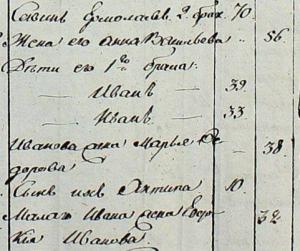 Савинъ Ермолаевъ 2 брак. 70
Жена его Анна Васильева 56
Дѣти его 1го брака:
Иванъ 39
Иванъ 33
Иванова жена Марья Ѳе 38
дорова
Сынъ ихъ Антипа 10
Малаго Ивана жена Евдо 32
кія Иванова